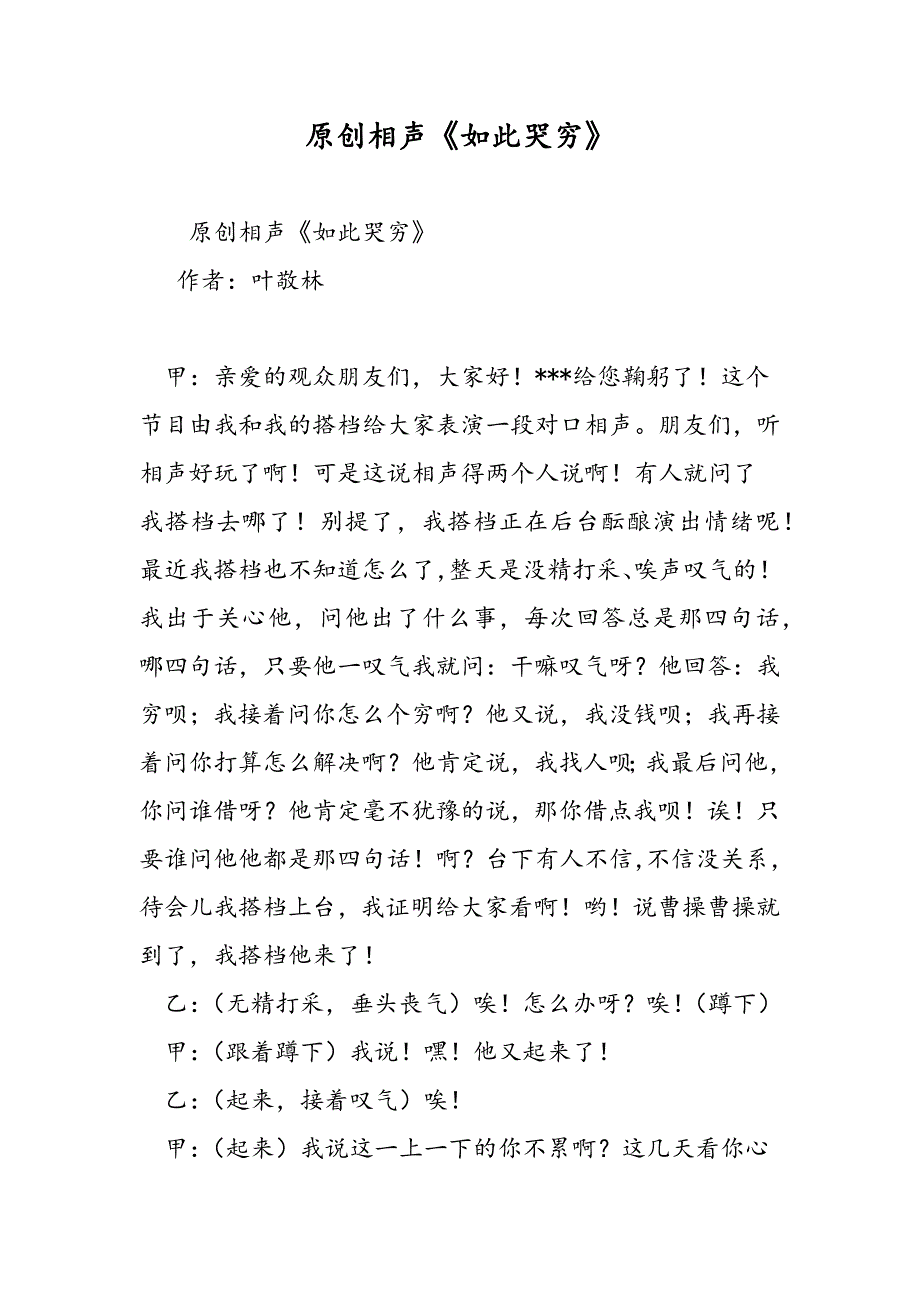 原创相声《如此哭穷》
原创相声《如此哭穷》
作者：叶敬林
甲：亲爱的观众朋友们，大家好！***给您鞠躬了！这个
节目由我和我的搭档给大家表演一段对口相声。朋友们，听
相声好玩了啊！可是这说相声得两个人说啊！有人就问了
我搭档去哪了！别提了，我搭档正在后台酝酿演出情绪呢！
最近我搭档也不知道怎么了,整天是没精打采、唉声叹气的！
我出于关心他，问他出了什么事，每次回答总是那四句话，
哪四句话，只要他一叹气我就问：干嘛叹气呀？他回答：我
穷呗；我接着问你怎么个穷啊？他又说，我没钱呗；我再接
着问你打算怎么解决啊？他肯定说，我找人呗；我最后问他，
你问谁借呀？他肯定毫不犹豫的说，那你借点我呗！诶！只
要谁问他他都是那四句话！啊？台下有人不信,不信没关系，
待会儿我搭档上台，我证明给大家看啊！哟！说曹操曹操就
到了，我搭档他来了！
乙：（无精打采，垂头丧气）唉！怎么办呀？唉！（蹲下）
甲：（跟着蹲下）我说！嘿！他又起来了！
乙：（起来，接着叹气）唉！
甲：（起来）我说这一上一下的你不累啊？这几天看你心